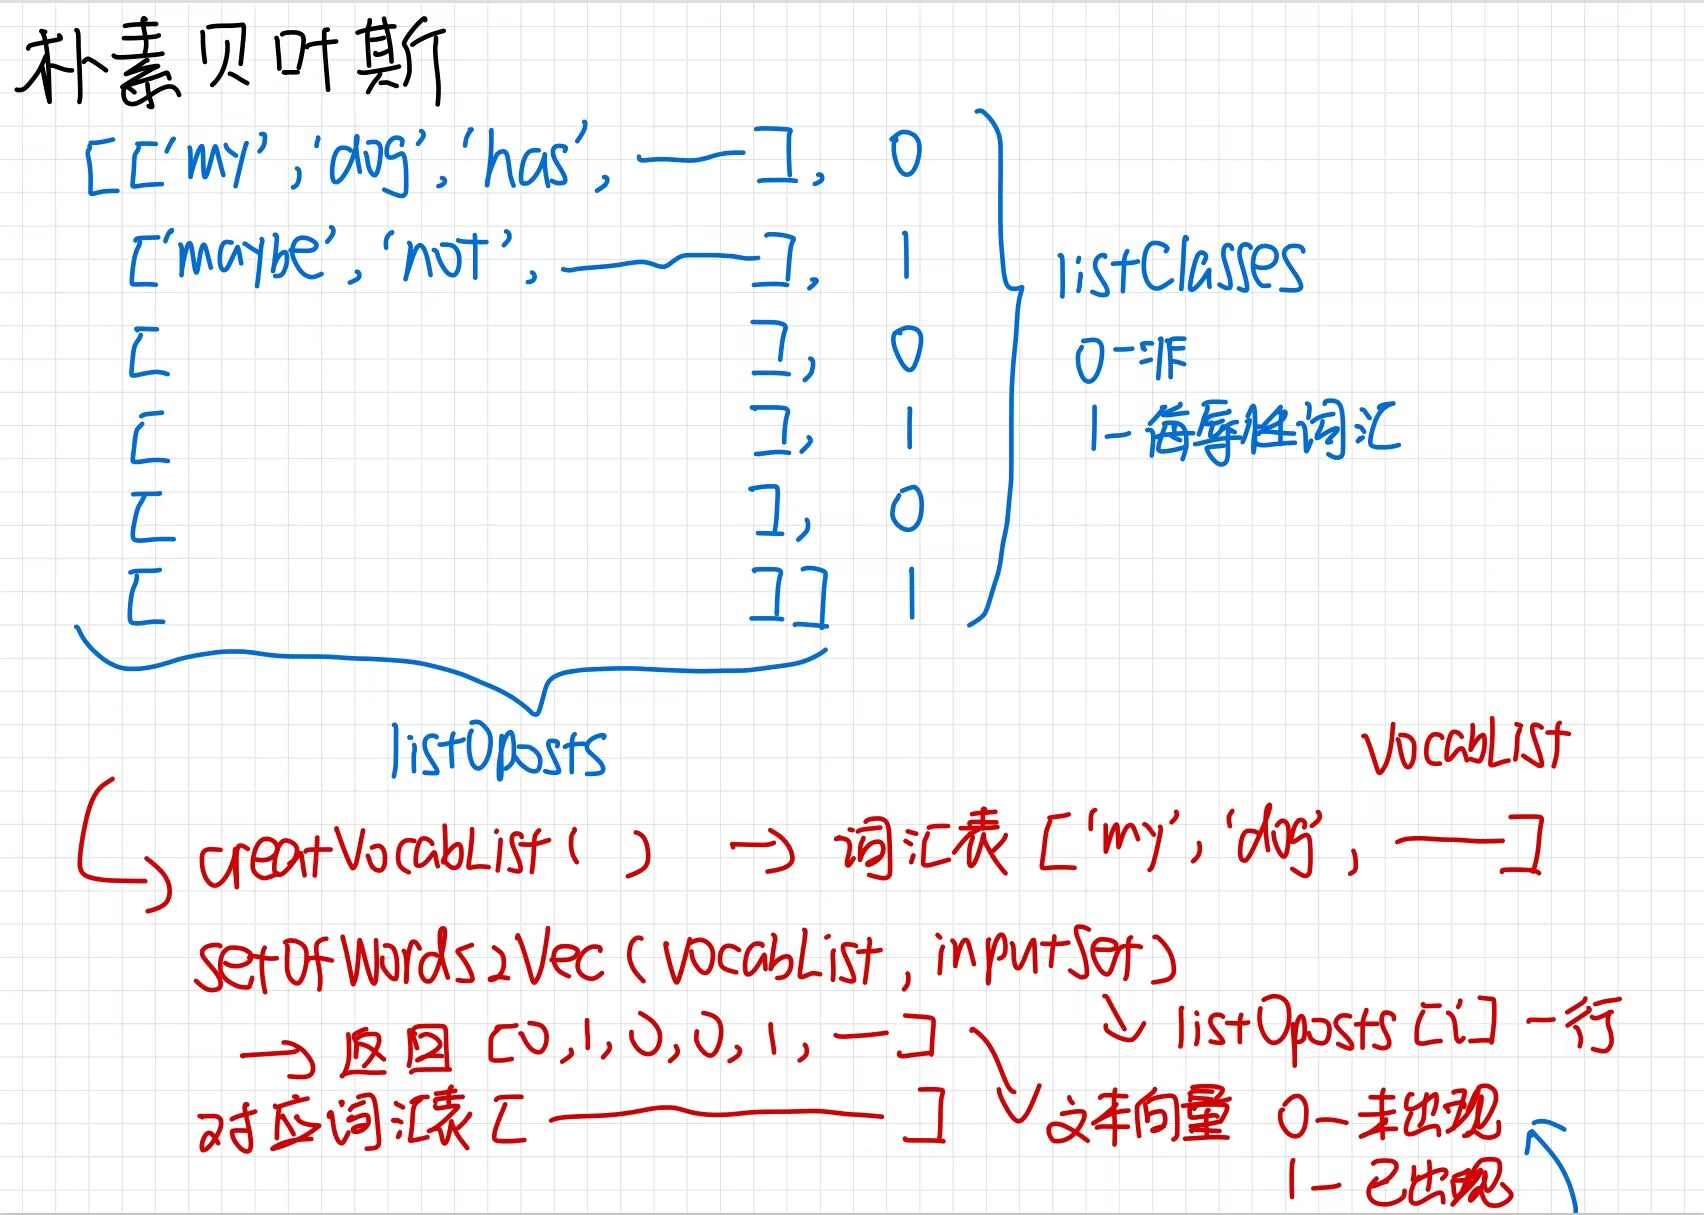 朴素贝叶斯
[['my','dog','has',——], 0
['maybe','not',——], 1
[ ], 0
[ ], 1
[ ], 0
[ ]] 1
listClasses
0-非
1-侮辱性词汇
listOposts
vocabList
creatVocabList( ) → 词汇表 ['my','dog',——]
setOfWords2Vec(vocabList, inputSet)
listOposts[i] 一行
→ 返回 [0,1,0,0,1,—]
对应词汇表 [——]
文本向量 0-未出现
1-已出现